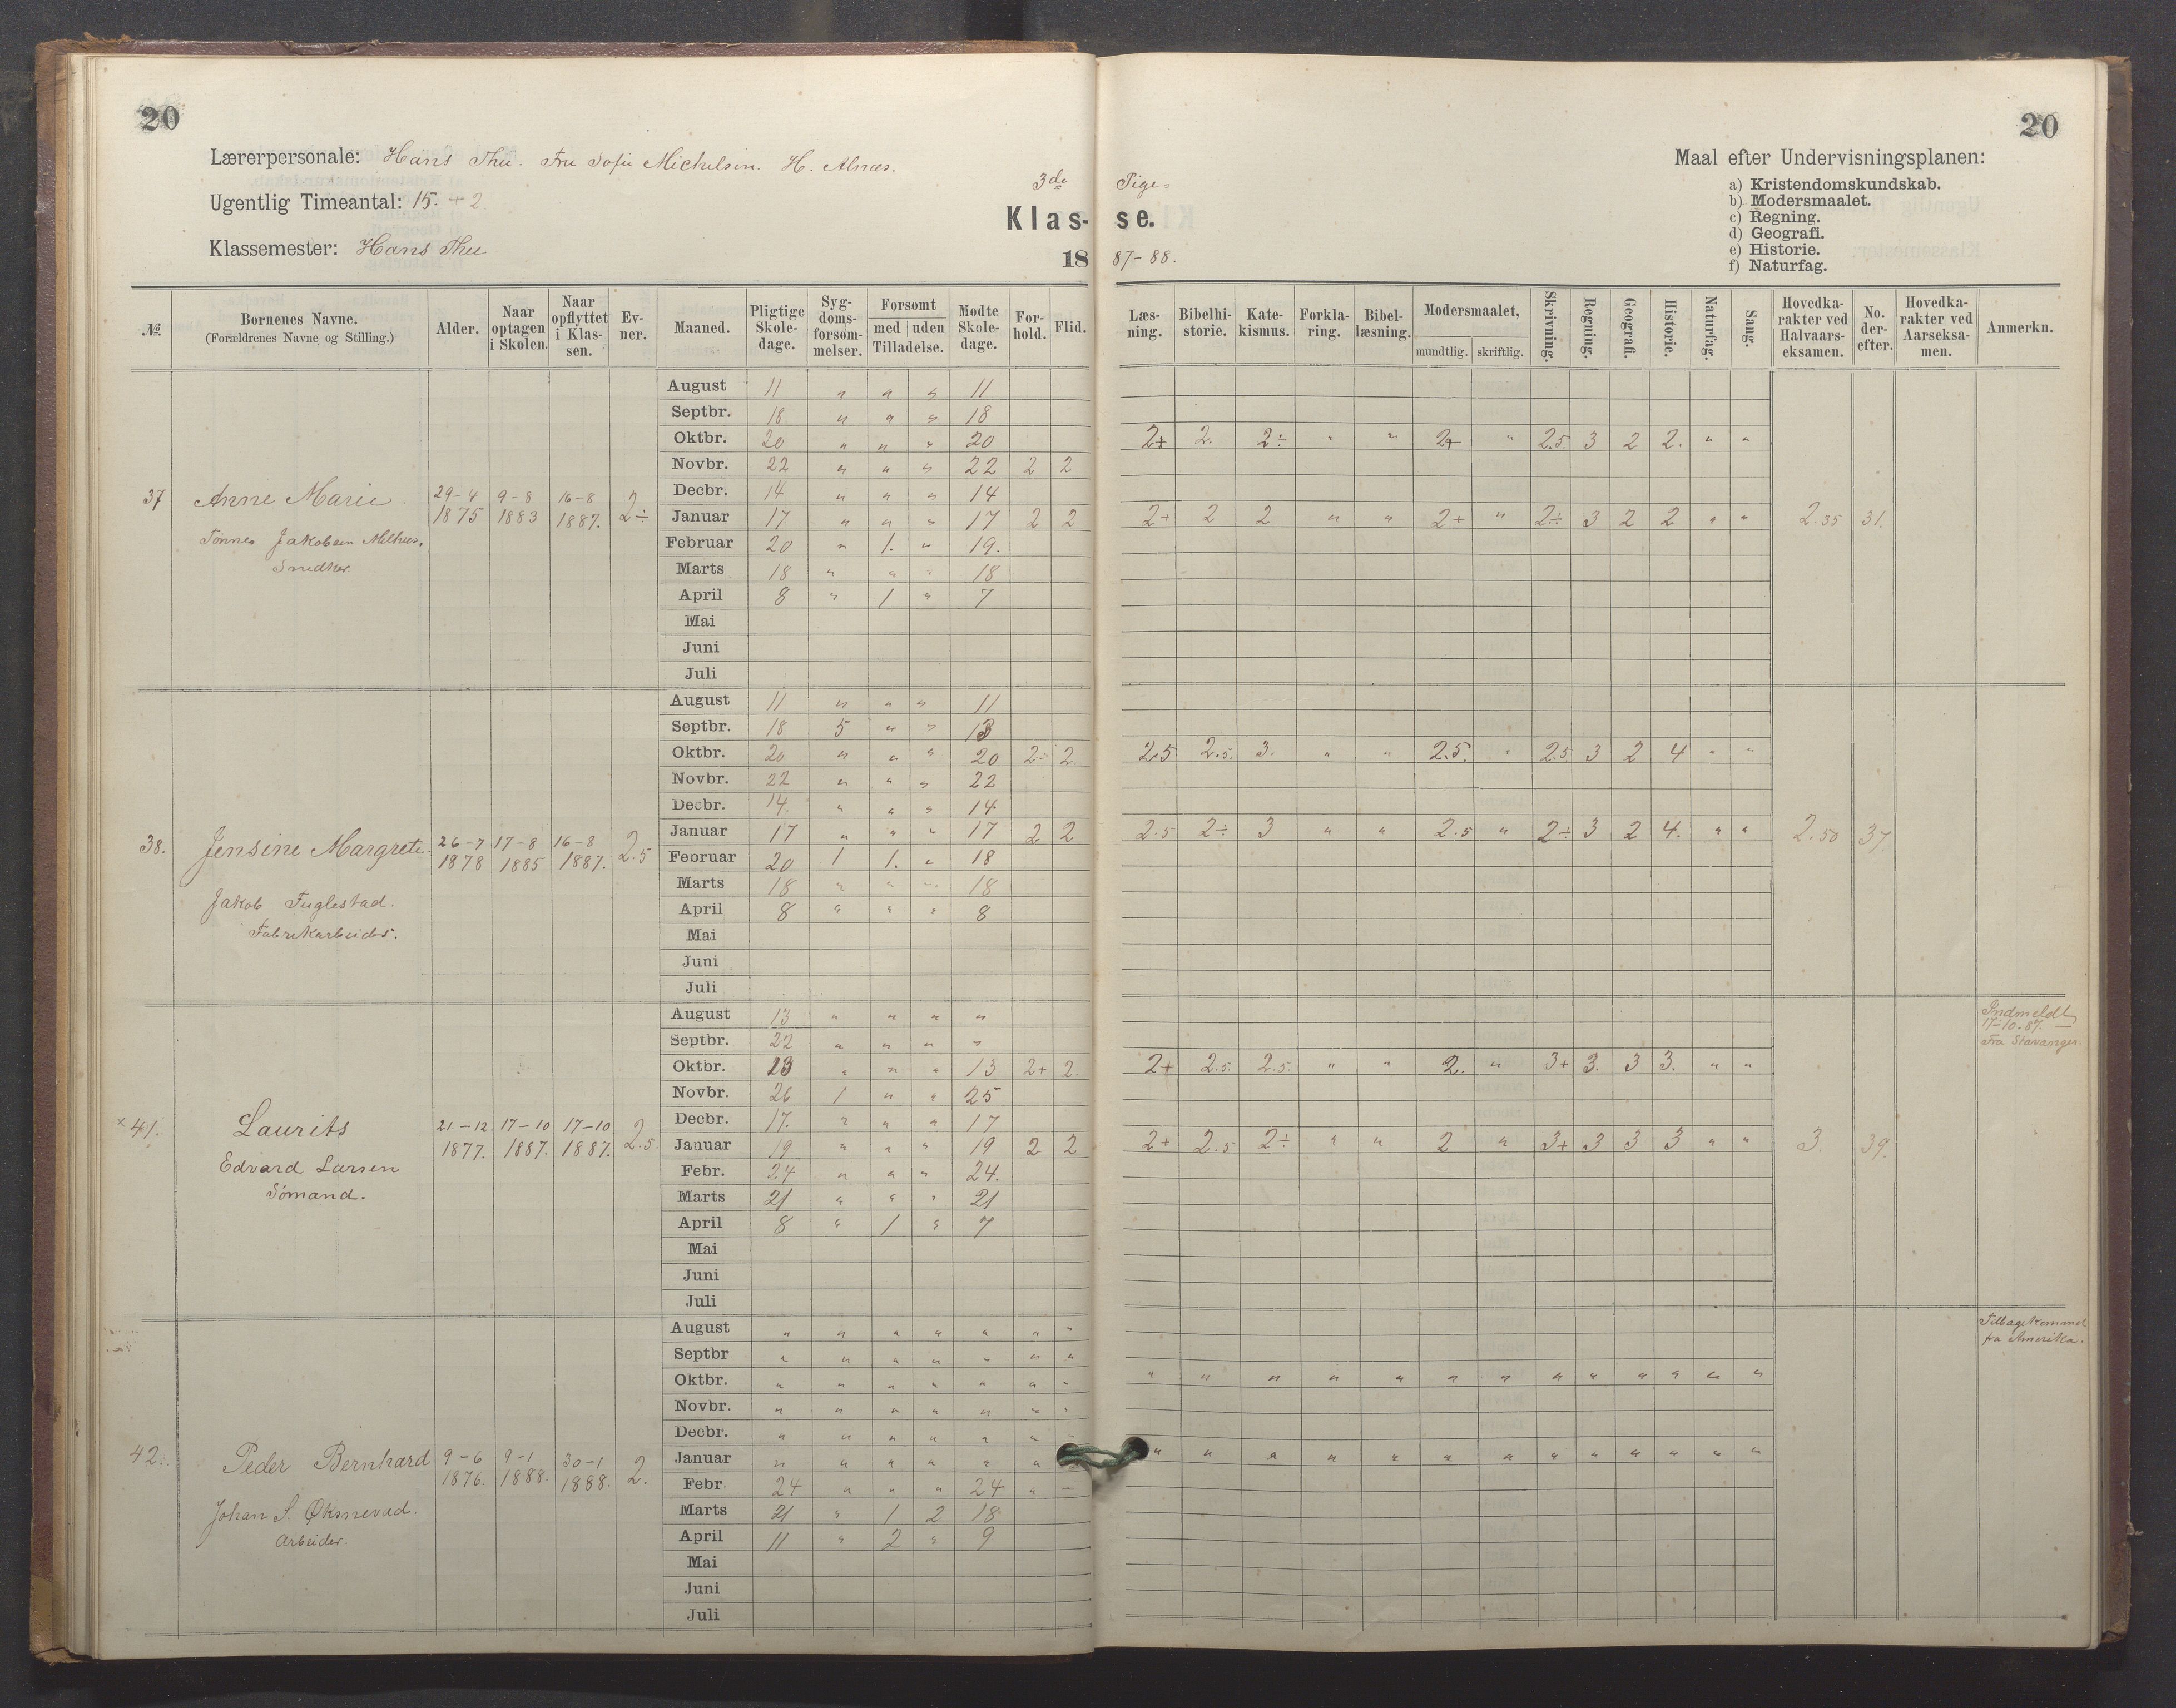 20
20
Lærerpersonale: Hans Thu. Fru Sofie Michelsen. H. Alnæs.
Ugentlig Timeantal: 15. + 2
Klassemester: Hans Thu.
3de Pige=
Klas- se.
18 87-88.
Maal efter Undervisningsplanen:
a) Kristendomskundskab.
b) Modersmaalet.
c) Regning.
d) Geografi.
e) Historie.
f) Naturfag.
No. Børnenes Navne. (Forældrenes Navne og Stilling.) Alder. Naar optagen i Skolen. Naar opflyttet i Klassen. Evner. Maaned. Pligtige Skoledage. Sygdomsforsømmelser. Forsømt med uden Tilladelse. Mødte Skoledage. Forhold. Flid. Læsning. Bibelhistorie. Katekismus. Forklaring. Bibellæsning. Modersmaalet, mundtlig. skriftlig. Skrivning. Regning. Geografi. Historie. Naturfag. Sang. Hovedkarakter ved Halvaarseksamen. No. derefter. Hovedkarakter ved Aarseksamen. Anmerkn.
August 11 " " " 11
Septbr. 18 " " " 18
Oktbr. 20 " " " 20 2+ 2. 2÷ " " 2+ " 2.5. 3 2 2. " "
Novbr. 22 " " " 22 2 2
Decbr. 14 " " " 14
37 Anne Marie. 29-4 1875 9-8 1883 16-8 1887. 2÷
Januar 17 " " " 17 2 2 2+ 2 2 " " 2+ " 2÷ 3 2 2 " " 2.35 31.
Tønnes Jakobsen
Snedker.
Februar 20 " 1. " 19.
Marts 18 " " " 18
April 8 " 1 " 7
Mai
Juni
Juli
August 11 " " " 11
Septbr. 18 5 " " 13
Oktbr. 20 " " " 20 2÷ 2 2.5 2.5. 3. " " 2.5. " 2.5. 3 2 4 " "
Novbr. 22 " " " 22
Decbr. 14 " " " 14
38. Jensine Margrete. 26-7 1878 17-8 1885 16-8 1887. 2.5
Januar 17 " " " 17 2 2 2.5 2÷ 3 " " 2.5 " 2÷ 3 2 4. " " 2.50 37
Februar 20 1 1. " 18
Jakob Fuglestad.
Fabrikarbeider.
Marts 18 " " " 18
April 8 " " " 8
Mai
Juni
Juli
August 13 " " " "
Indmeldt
17-10.87. —
Fra Stavanger.
Septbr. 22 " " " "
Oktbr. 13 " " " 13 2+ 2. 2+ 2.5. 2.5. " " 2. " 3+ 3. 3 3. " "
Novbr. 26 1 " " 25
Decbr. 17. " " " 17
×41. Laurits 21-12. 1877. 17-10 1887. 17-10 1887. 2.5.
Edvard Larsen
Sømand.
Januar 19 " " " 19 2 2 2+ 2.5 2÷ " " 2 " 3+ 3 3 3 " " 3. 39.
Febr. 24 " " " 24.
Marts 21 " " " 21
April 8 " 1 " 7
Mai
Juni
Juli
August " " " " " " "
Tilbagekommet
fra Amerika.
Septbr " " " " " " "
Oktbr. " " " " " " " " " " " " " " " " " " " "
Novbr. " " " " " " "
Decbr. " " " " " " "
42. Peder Bernhard 9-6 1876. 9-1 1888. 30-1 1888. 2.
Johan S. Øksnevad.
Arbeider.
Januar " " " " " " " " " " " " " " " " " " "
Febr 24 " " " 24 " "
Marts 21 " 1 2 18
April 11 " 2 " 9
Mai
Juni
Juli